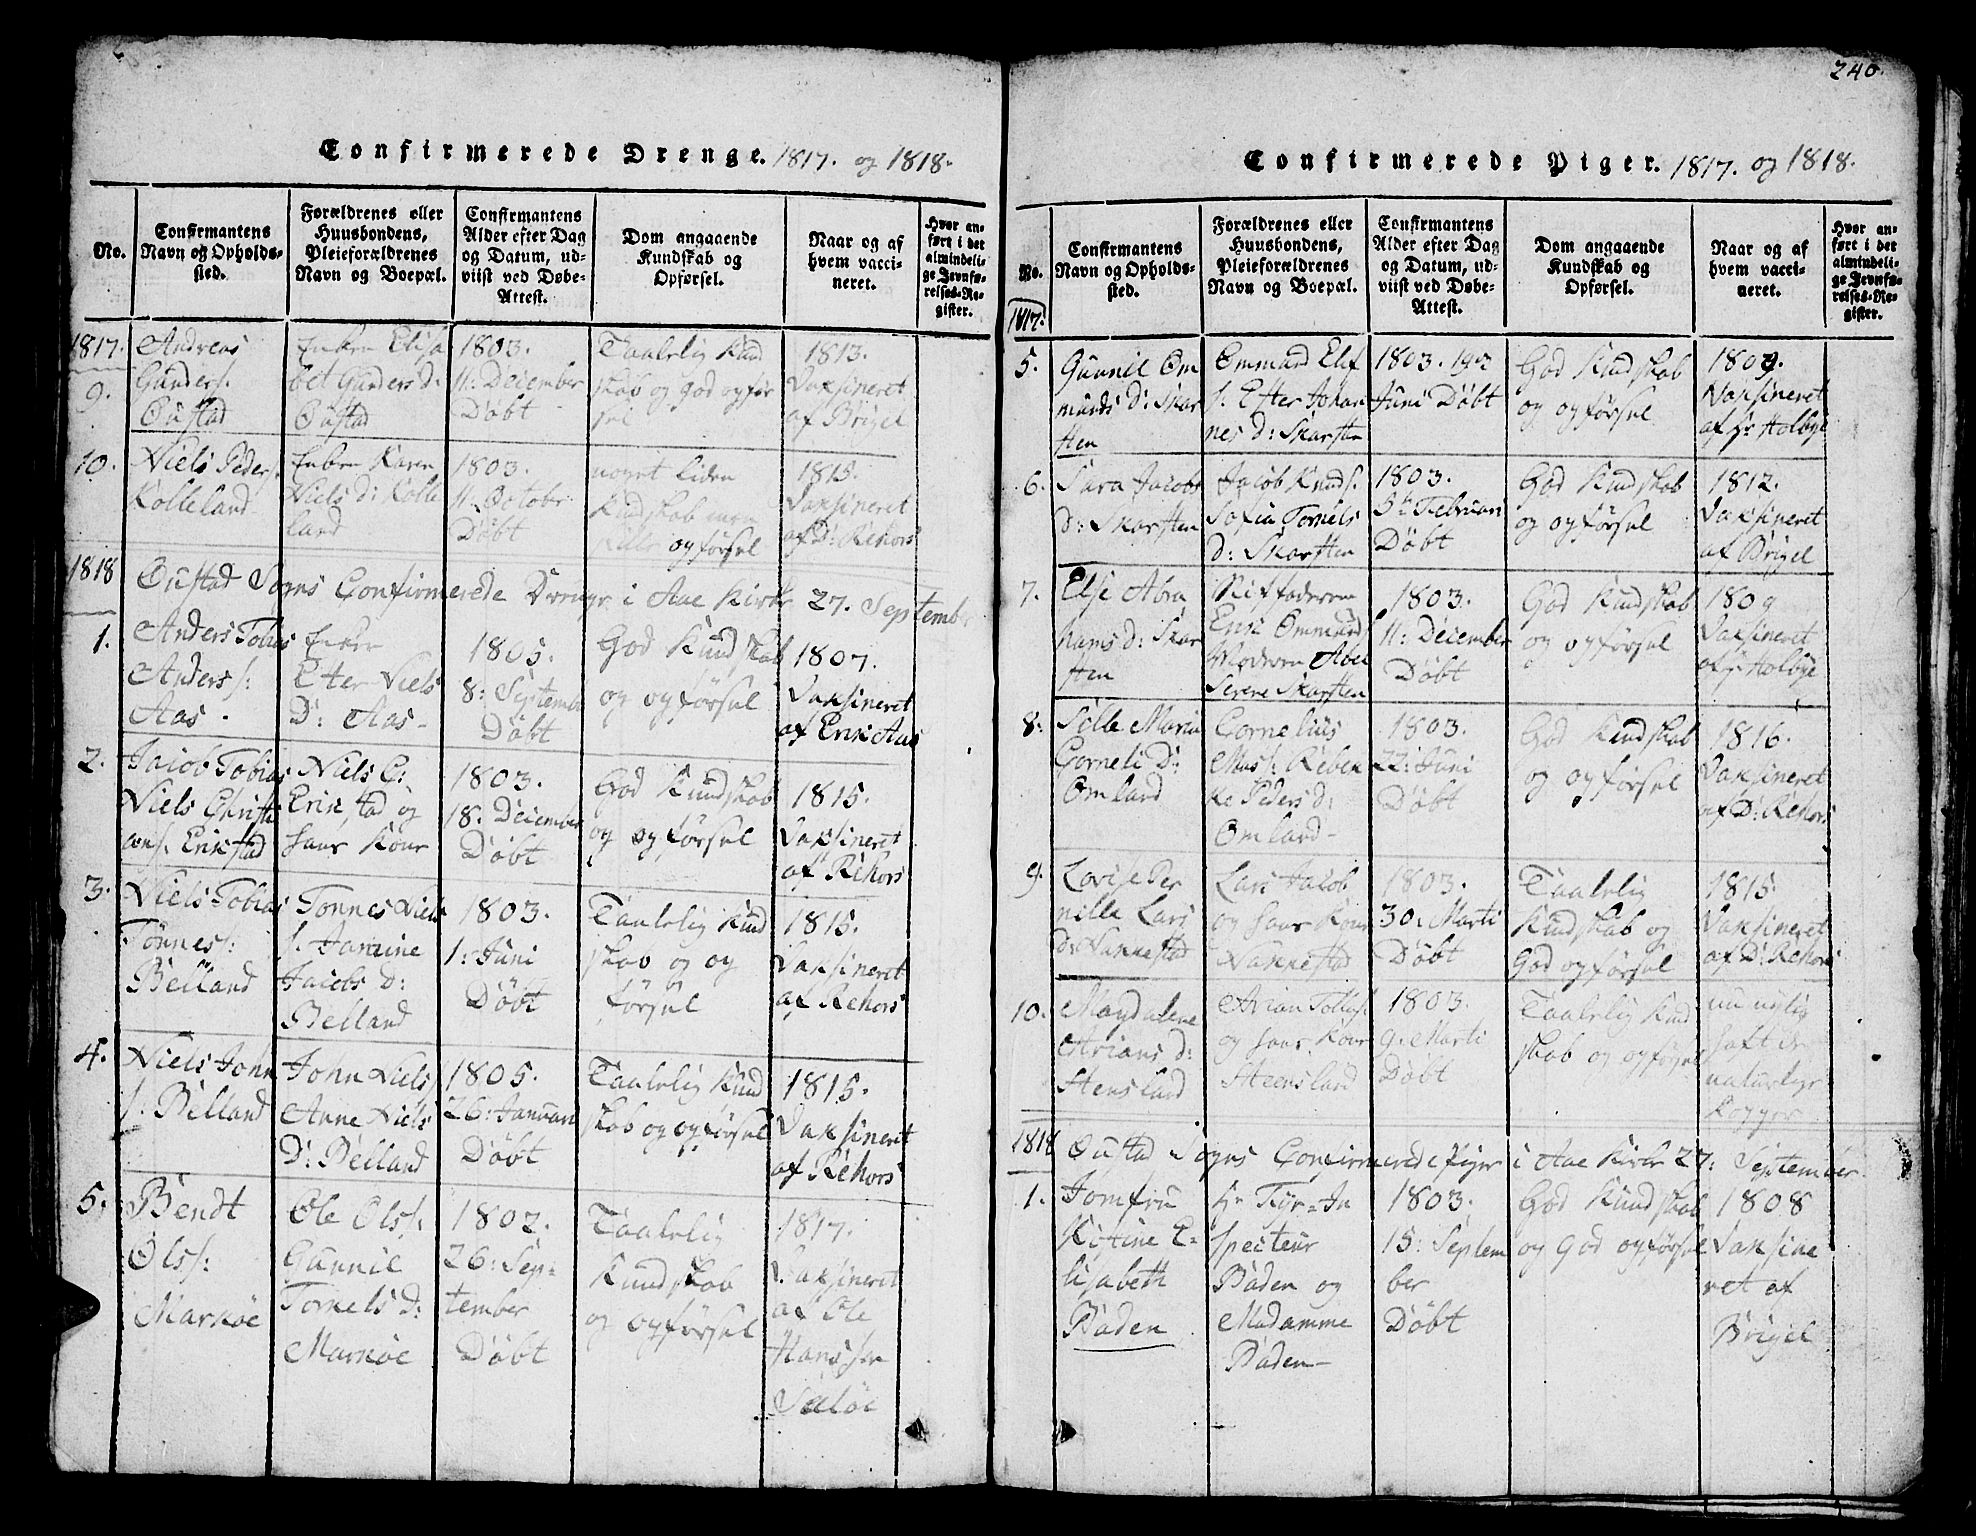 Confirmerede Drenge. 1817. og 1818.
No.
Confirmantens
Navn og Opholds-
sted.
Forældrenes eller
Huusbondens,
Pleieforældrenes
Navn og Boepæl.
Confirmantens
Alder efter Dag
og Datum, ud-
viist ved Døbe-
Attest.
Dom angaaende
Kundskab og
Opførsel.
Naar og af
hvem vacci-
neret.
Hvor an-
ført i det
almindeli-
ge Jevnfø-
relses-Re-
gister.
1817.
9.
Andreas
Gunders:
Oustad
Enken Elisa
bet Gunders d:
Oustad
1803.
11: December
Döbt
Taalelig Kund
skab og god opför
sel
1813.
Vaksineret
af Brigel
10.
Niels Peders:
Kolleland
Enken Karen
Niels d: Kolle
land
1803.
11. October
Döbt
noget liden
Kundskab men
opförsel
1815.
Vaksineret
af D: Rehors
1818
Oustad Sogns Confirmerede Drenge i Aae Kirke 27. September
1.
Anders Tobias
Anders s:
Aas.
Enken
Eter Niels
D: Aas-
1805.
8: September
Döbt
God Kundskab
og opförsel
1807.
Vaksineret
af Erik Aas
2.
Jacob Tobias
Niels Christi
ans: Erikstad
Niels C:
Erikstad og
hans Kone
1803.
18. December
Döbt
God Kundskab
og opförsel
1815.
Vaksineret
af Rehors
3.
Niels Tobias
Tönnes s:
Belland
Tonnes Niels
s. Jamine
Jacobs D:
Belland
1803.
1: Juni
Döbt
Taalelig Kund
skab og op
försel
1815.
Vaksineret
af Rehors
4.
Niels John
s: Belland
John Niels
Anne Niels
D: Belland
1805.
26: Januari
Döbt
Taalelig Kund
skab og opförsel
1815.
Vaksineret
af Rehors
5.
Bendt
Ols s:
Marköe
Ole Ols s:
Gunnil
Torkels d:
Marköe
1802.
26: Sep-
tember
Döbt
Taalelig
Kundskab
og opförsel
1817.
Vaksineret
af Ole
Hanssen
Seelöe
240.
Confirmerede Piger. 1817. og 1818.
No.
Confirmantens
Navn og Opholds-
sted.
Forældrenes eller
Huusbondens,
Pleieforældrenes
Navn og Boepæl.
Confirmantens
Alder efter Dag
og Datum, ud-
viist ved Døbe-
Attest.
Dom angaaende
Kundskab og
Opførsel.
Naar og af
hvem vacci-
neret.
Hvor an-
ført i det
almindeli-
ge Jevnfø-
relses-Re-
gister.
1817.
5.
Gunnil Om
munds d: Skar
sten
Ommund Elef
s. Efter Johan
nes d: Skarsten
1803. 19de
Juni Döbt
God Kundskab
og opförsel
1809.
Vaksineret
af hr Holbye
6.
Sara Jacobs
d: Skarsten
Jacob Knuds:
Sofia Tornels
d: Skarsten
1803.
5te Februari
Döbt
God Kundskab
og opförsel
1812.
Vaksineret
af Brigel
7.
Else Abra
hams d: Skar
sten
Stiffaderen
Erik Ommunds
Moderen Abel
Serene Skarsten
1803.
11: December
Döbt
God Kundskab
og opförsel
1809
Vaksineret
af hr Holbye
8:
Sille Maria
Corneli D:
Omland
Cornelius
Mass: Rebek
ke Peders d:
Omland-
1803.
22: Juni
Döbt
God Kundskab
og opförsel
1816.
Vaksineret
af D: Rehors
9.
Lovise Per
nille Lars
d: Vannestad
Lars Jacob
og hans Kone
Vannestad
1803.
30: Marti
Döbt
Taalelig
Kundskab og
God opförsel
1815.
Vaksineret
af D: Rehors
10.
Magdalene
Arians d:
Stensland
Arian Tollefs:
og hans Kone
Steensland
1803.
9. Marti
Döbt
Taalelig Kund
skab og opförsel
nu nylig
haft de
naturlige
Kopper
1818
Oustad Sogns Confirmerede Piger i Aae Kirke 27: September
1.
Jomfru
Kistine E-
lisabeth
Baden
Hr Fyr-In
specteur
Baden og
Madamme
Baden-
1803.
15: Septem
ber
Döbt
God Kundskab
og God opförsel
1808
Vaksine
ret af
Brigel